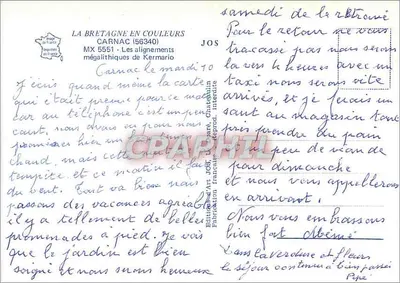 LA BRETAGNE EN COULEURS
CARNAC (56340)
MX 5551 - Les alignements
mégalithiques de Kermario
JOS
Carnac le mardi 10
J'écris quand même la carte
qui était prévue pour ce
car au téléphone c'est
cant, nous avons
premières hier un
chaud, mais cette nuit
tempête et ce matin il fait
du vent. Tout va bien nous
passons des vacances agréables
il y a tellement de belles
promenades à pied. Je vois
que le jardin est bien
soigné et nous serons heureux
samedi de le retrouvé
Pour le retour ne vous
tracassé pas nous serons
la vers heures avec un
taxi nous serons vite
arrivés, et je ferais un
saut au magasin
près prendre du pain
un peu de viande
pour dimanche
et nous vous appellerons
en arrivant.
Nous vous embrassons
bien fort Mémé
Dans la verdure et fleurs
le séjour continue à bien passé
Pépé
CPAPHIL